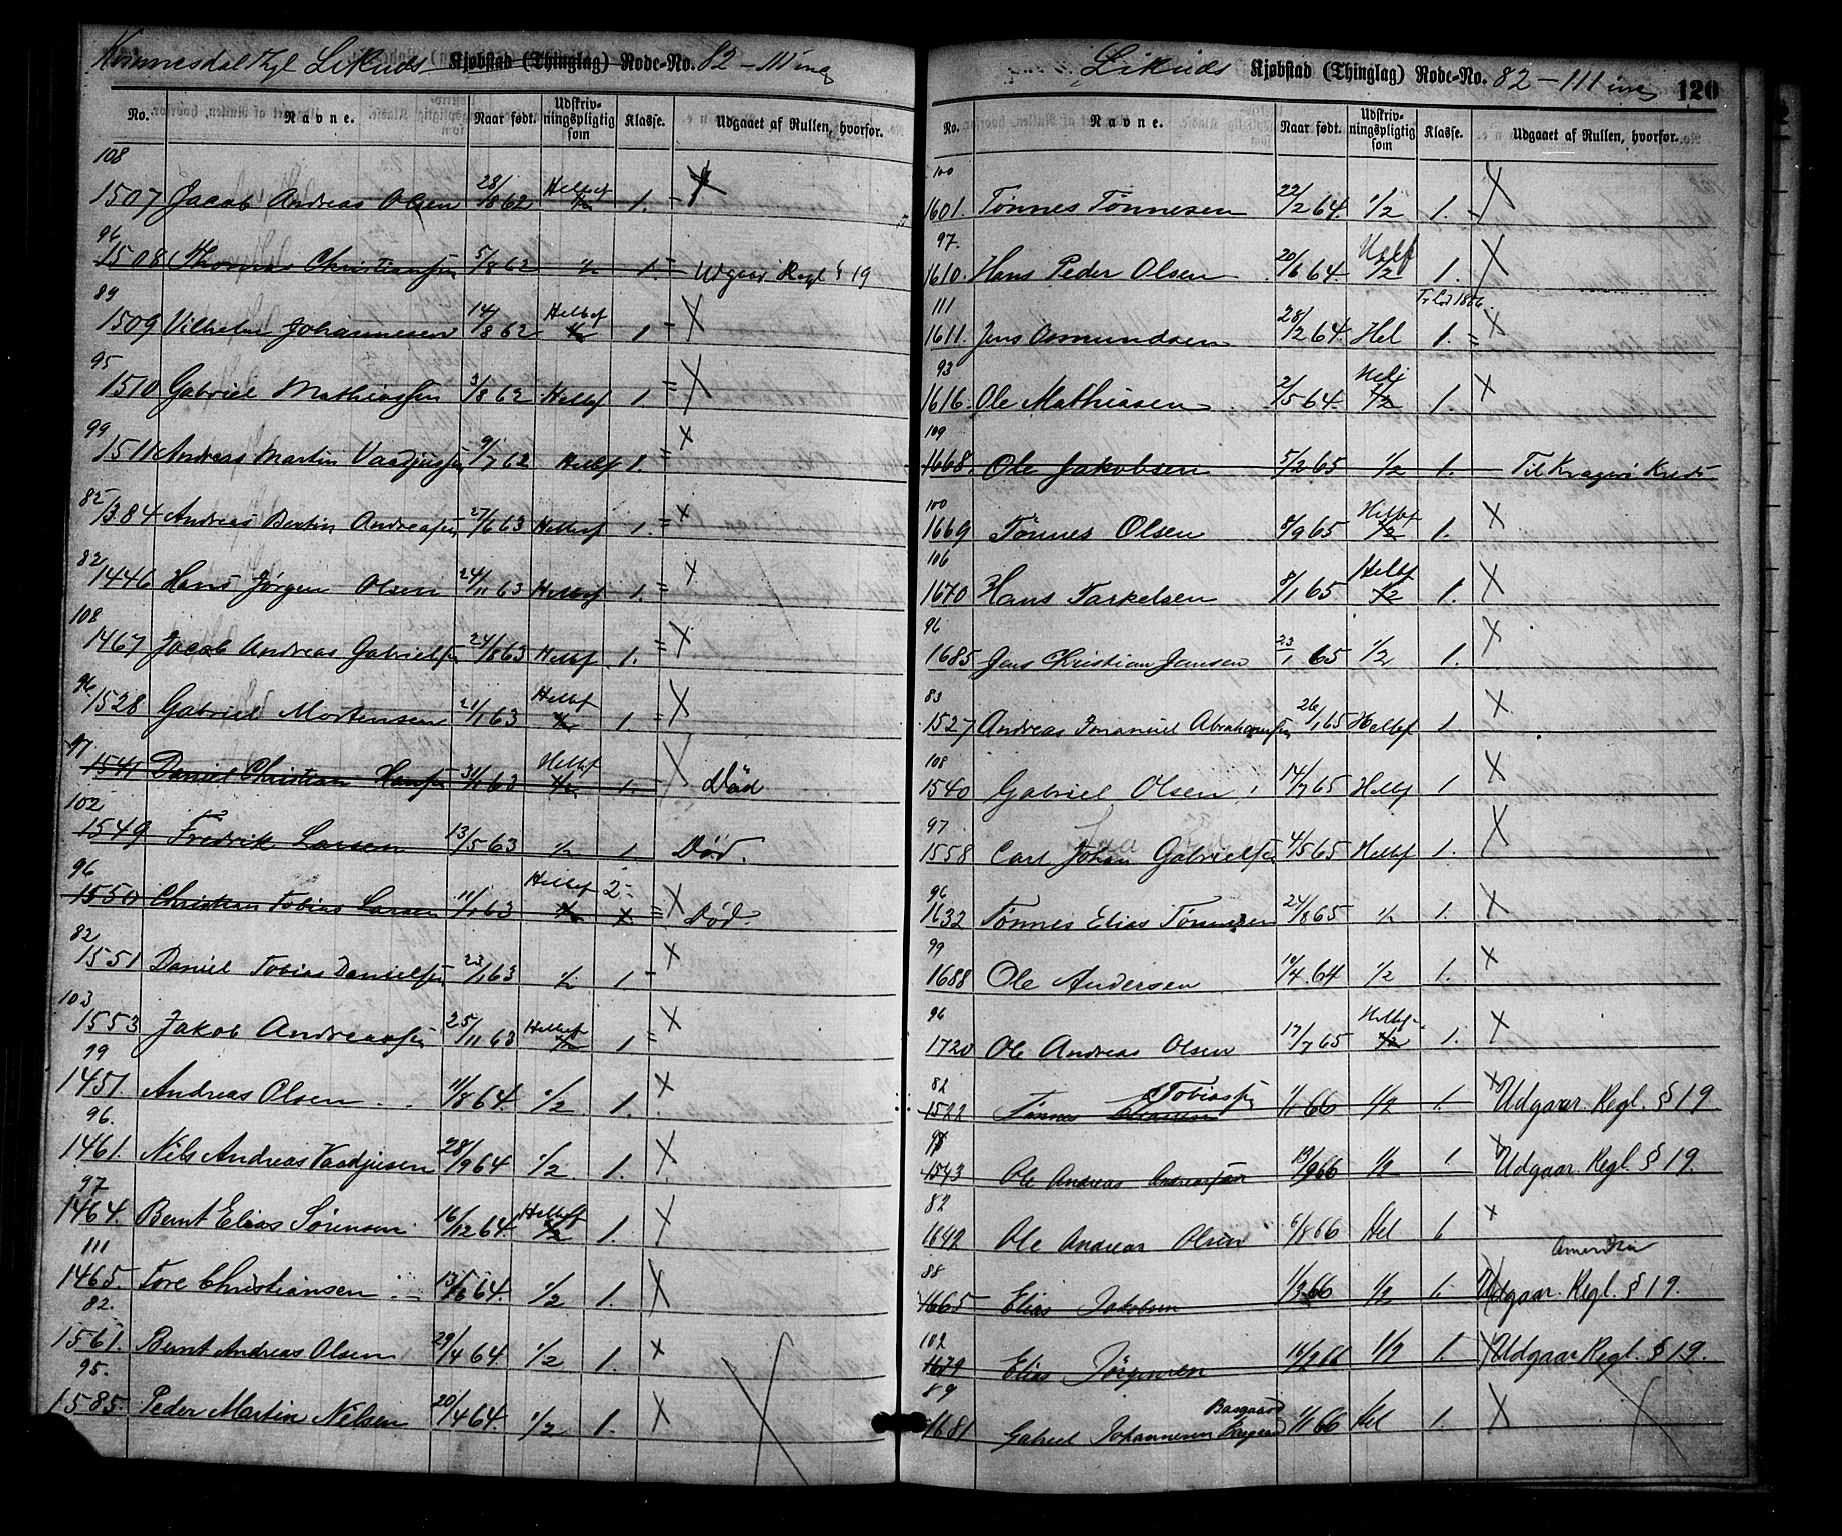 Kvinnesdal Tgl Likuds Kjøbstad (Thinglag) Rode-No. 82 – 111 inc
No. Navne. Naar født. Udskrivningspligtig som Klasse. Udgaaet af Rullen, hvorfor.
108
1507 Jacob Andreas Olsen 28/8 62 Helbef 1/2 1.
96
1508 Thomas Christiansen 5/8 62 1/2 1. Udgaar Regl § 19
89
1509 Vilhelm Johannesen 14/8 62 Helbef 1/2 1
95
1510 Gabriel Mathiassen 3/8 62 Helbef 1.
99
1511 Andreas Martin Vaadjusen 9/7 62 Helbef 1.
82
1384 Andreas Bertin Andreasen 27/6 63 Helbef 1.
82
1446 Hans Jørgen Olsen 24/11 63 Helbef 1.
108
1467 Jacob Andreas Gabrielsen 24/8 63 Helbef 1.
96
1528 Gabriel Mortensen 21/1 63 Helbef 1/2 1.
97
1541 Daniel Christian Hansen 31/1 63 Helbef 1/2 1. Død
102
1549 Fredrik Larsen 13/5 63 1/2 1 Død.
96
1550 Christian Tobias Larsen 11/1 63 Helbef 1/2 2 Død.
82
1551 Daniel Tobias Danielsen 23/1 63 1/2 1
103
1553 Jakob Andreasen 25/11 63 Helbef 1/2 1.
99
1451. Andreas Olsen 11/8 64. 1/2 1.
96.
1461. Nils Andreas Vaadjusen 28/9 64 1/2 1.
97
1464. Bernt Elias Sørensen 16/12 64. Helbef 1/2 1.
111
1465. Tore Christiansen 13/6 64. 1/2 1.
82.
1561. Bernt Andreas Olsen 29/4 64. 1/2 1.
95.
1585. Peder Martin Nilsen 20/4 64. 1/2 1.
Likuds Kjøbstad (Thinglag) Rode-No. 82 – 111 inc 120
No. Navne. Naar født. Udskrivningspligtig som Klasse. Udgaaet af Rullen, hvorfor.
100
1601. Tønnes Tønnesen 22/2 64. 1/2 1.
97.
1610. Hans Peder Olsen 20/6 64. Helbf 1/2 1.
111
1611. Jens Asmundsen 28/2 64. Hel 1.
93
1616. Ole Mathiasen 2/5 64. 1/2 1.
109
1668. Ole Jakobsen 5/2 65 1/2 1. Til Kragerø Kreds
100
1669 Tønnes Olsen 8/9 65 Helbf 1/2 1.
106
1670 Hans Tarkelsen 8/1 65 Helbf 1/2 1.
96
1685 Jens Christian Jansen 23/1 65 1/2 1.
83
1527 Andreas Imanuel Abrahamsen 26/1 65 Helbef 1.
108
1540 Gabriel Olsen 14/7 65 Helbf 1
97
1558 Carl Johan Gabrielsen 4/5 65 Helbef 1.
96
1632 Tønnes Elias Tønnesen 24/8 65 1/2 1.
99
1688 Ole Andersen 10/4 64 1/2 1.
96
1720 Ole Andreas Olsen 17/7 65 Helbef 1/2 1.
82 Tobiassen
1522 Tønnes 1/1 66 1/2 1. Udgaar Regl. § 19
97
1543 Ole Andreas Andreassen 19/9 66 1/2 1 Udgaar Regl. § 19.
82
1642 Ole Andreas Olsen 6/8 66 Hel 1
88 Amerika
1665 Elias Jakobsen 1/3 66 1/2 1. Udgaar Regl. § 19.
102
1679 Elias Jørgensen 16/2 66 1/2 1. Udgaar Regl. § 19.
89
1681 Gabriel Johannesen Basgaard 1/1 66 Hel 1.